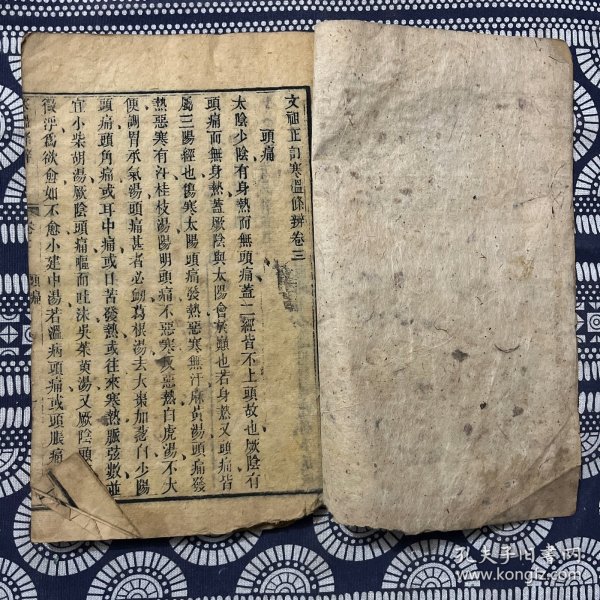 文祖正訂寒溫條辨卷三
頭痛
太陰少陰有身熱而無頭痛蓋二經皆不上頭故也厥陰有
頭痛而無身熱蓋厥陰與太陽會於巔也若身熱又頭痛皆
屬三陽經也傷寒太陽頭痛發熱惡寒無汗麻黃湯頭痛發
熱惡寒有汗桂枝湯陽明頭痛不惡寒反惡熱白虎湯不大
便調胃承氣湯頭痛甚者必衂葛根湯去大棗加蔥白少陽
頭痛頭角痛或耳中痛或口苦發熱或往來寒熱脈弦數並
宜小柴胡湯厥陰頭痛嘔而吐沫吳茱萸湯又厥陰頭
微浮爲欲愈如不愈小建中湯若溫病頭痛或頭脹痛
頭痛
孔夫子旧书网
www.kongfz.com